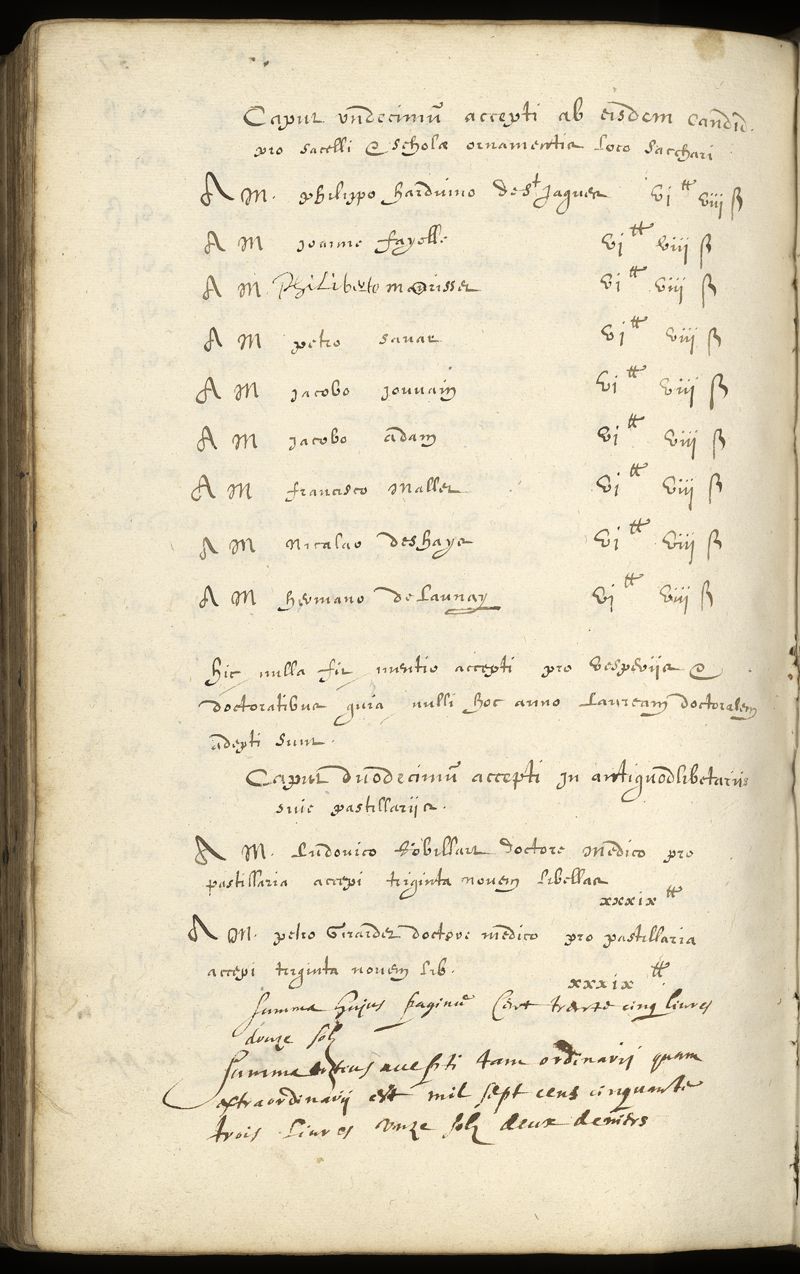 Caput vndecimū accepti ab eisdem Candid.
pro sacelli & scholæ ornamentis loco sacchari
A M. Philippo Harduino de St Jaques vi tt viii ß
A M Joanne Fayelle vi tt viii ß
A M Philiberto Morisset vi tt viii ß
A M petro savar vi tt viii ß
A M Jacobo Jouvain vi tt viii ß
A M Jacobo adam vi tt viii ß
A M francisco Mallet vi tt viii ß
A M Nicalao deshays vi tt viii ß
A M Hermano de Launay vi tt viii ß
hic nulla fit mentio accepti pro vesperijs &
doctoratibus quia nulli hoc anno Lauream doctoralem
adepti sunt.
Caput duodecimū accepti in antiquodlibetariis
sive pastillarijs.
A M. Ludovico Robillart doctore medico pro
pastillaria accepi triginta novem libellas
xxxix tt
A M. petro Girardet doctore medico pro pastillaria
accepi triginta novem lib.
xxxix tt
Summa hujus paginæ Cent trente cinq livres
douze solz
Summa totius accepti tam ordinarij quam
extraordinarij est mil sept cens cinquante
trois livres unze solz deux deniers